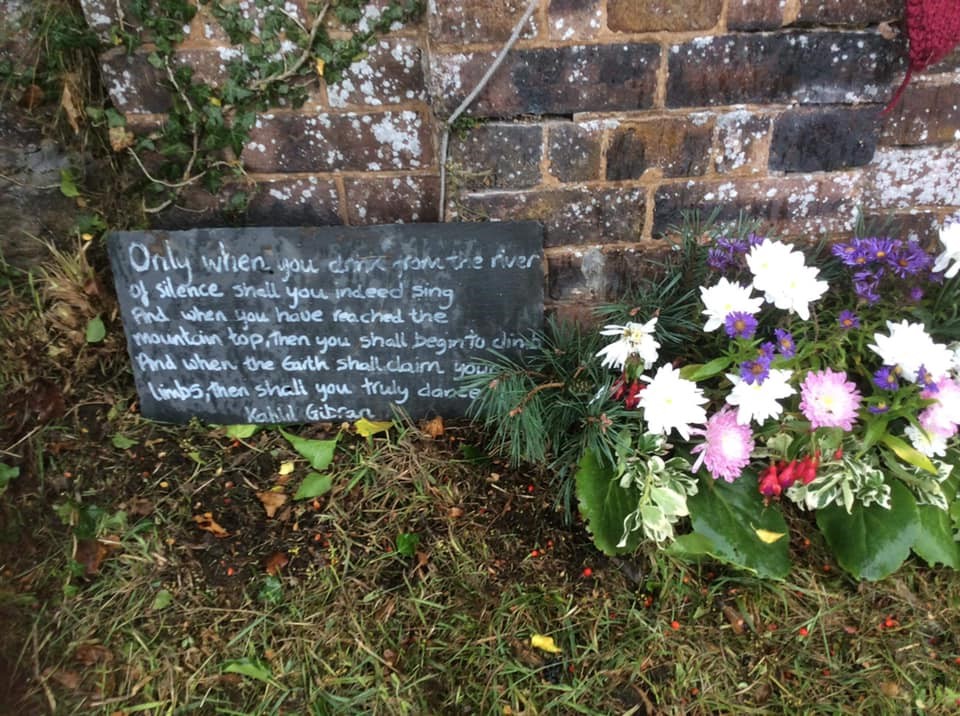 Only when you drink from the river
of silence shall you indeed sing
And when you have reached the
mountain top, then you shall begin to climb
And when the Earth shall claim your
limbs, then shall you truly dance
Kahlil Gibran